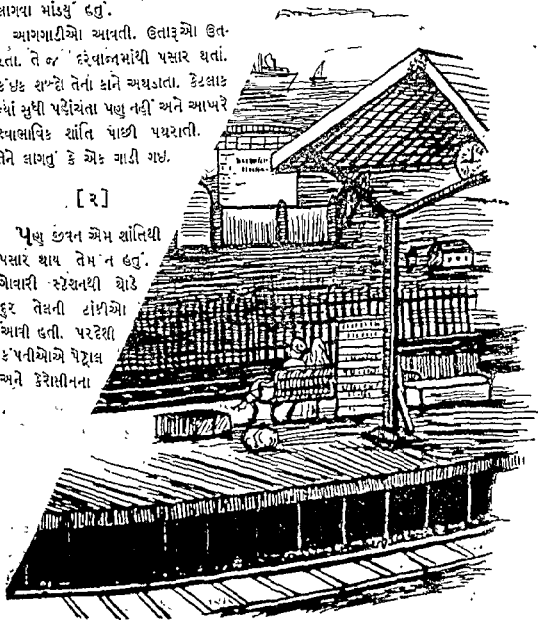 લાગવા માંડયું હતું.
આગગાડીઓ આવતી. ઉતારૂઓ ઉત-
રતા. તે જ દરવાજામાંથી પસાર થતાં.
કંઇક શબ્દો તેના કાને અથડાતા. કેટલાક
ત્યાં સુધી પહોંચતા પણ નહીં અને આખરે
સ્વાભાવિક શાંતિ પાછી પથરાતી.
તેને લાગતું કે એક ગાડી ગઇ.
[૨]
પણ જીવન એમ શાંતિથી
પસાર થાય તેમ ન હતું.
ઓવારી સ્ટેશનથી થોડે
દુર તેલની ટાંકીઓ
આવી હતી. પરદેશી
કંપનીઓએ પેટ્રોલ
અને કેરોસીનના